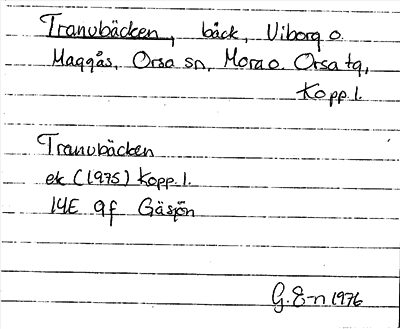 Tranubäcken, bäck, Viborg o.
Maggås, Orsa sn, Mora o. Orsa tg,
Kopp. l.
Tranubäcken
ek (1975) Kopp. l.
14E 9f Gäsjön
G. E-n 1976